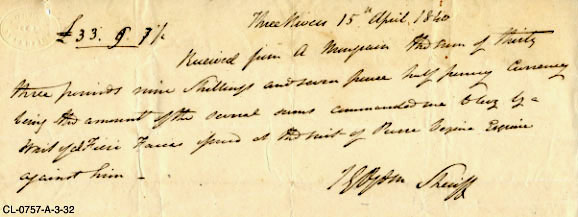 Three Rivers 15th April 1840
£33. 9. 7½
Received from A the sum of thirty
three pounds nine Shillings and seven pence half penny Currency
being the amount of the several sums commanded me to levy by a
Writ of Fieri Facias issued at the suit of Pierre Vezina Esquire
against him –
Sheriff
CL-0757-A-3-32